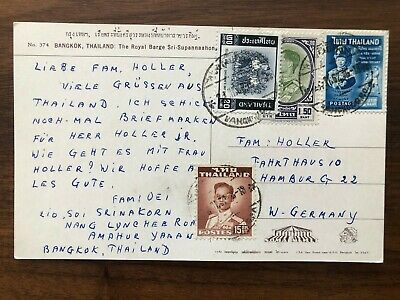 No. 374 BANGKOK, THAILAND: The Royal Barge Sri-Supannahon,
LIEBE FAM. HOLLER,
VIELE GRÜSSE AUS
THAILAND. ICH SCHICK
NOCH-MAL BRIEFMARKEN
FÜR HERR HOLLER JR.
WIE GEHT ES MIT FRAU
HOLLER? WIR HOFFE A-
LES GUTE.
FAM: OEI
SOI SRINAKORN
NANG LYNCHEE ROAD
YANAWA
BANGKOK, THAILAND
THAILAND
1.50
ไทย THAILAND
POSTAGE
FAM: HOLLER
FAHRTHAUS 10
HAMBURG 22
W-GERMANY
THAILAND
15
POSTES